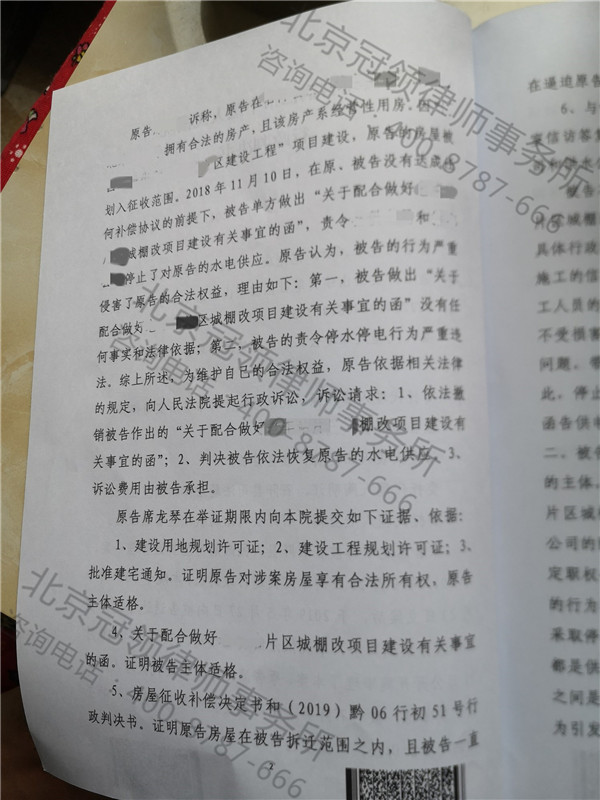 原告 诉称，原告在
拥有合法的房产，且该房产系经营性用房。
区建设工程”项目建设，原告的房屋被
划入征收范围。2018年11月10日，在原、被告没有达成任
何补偿协议的前提下，被告单方做出“关于配合做好
城棚改项目建设有关事宜的函”，责令 和
停止了对原告的水电供应。原告认为，被告的行为严重
侵害了原告的合法权益，理由如下：第一，被告做出“关于
配合做好 区城棚改项目建设有关事宜的函”没有任
何事实和法律依据；第二，被告的责令停水停电行为严重违
法。综上所述，为维护自己的合法权益，原告依据相关法律
的规定，向人民法院提起行政诉讼，诉讼请求：1、依法撤
销被告作出的“关于配合做好 棚改项目建设有
关事宜的函”；2、判决被告依法恢复原告的水电供应。3、
诉讼费用由被告承担。
原告席龙琴在举证期限内向本院提交如下证据、依据：
1、建设用地规划许可证；2、建设工程规划许可证；3、
批准建宅通知。证明原告对涉案房屋享有合法所有权，原告
主体适格。
4、关于配合做好 片区城棚改项目建设有关事宜
的函。证明被告主体适格。
5、房屋征收补偿决定书和（2019）黔06行初51号行
政判决书。证明原告房屋在被告拆迁范围之内，且被告一直
3
在逼迫原告
6、与
被告
区城棚
具体行政
施工的信
工人员的
不受损害
问题。带
此。停止
函告供电
二、被告
的主体。
片区城
公司的
定职权
的行为
采取停
都是供
之间是
为引发
北京冠领律师事务所
咨询电话：400-8787-666
北京冠领律师事务所
咨询电话：400-8787-666
北京冠领律师事务所
咨询电话：400-8787-666